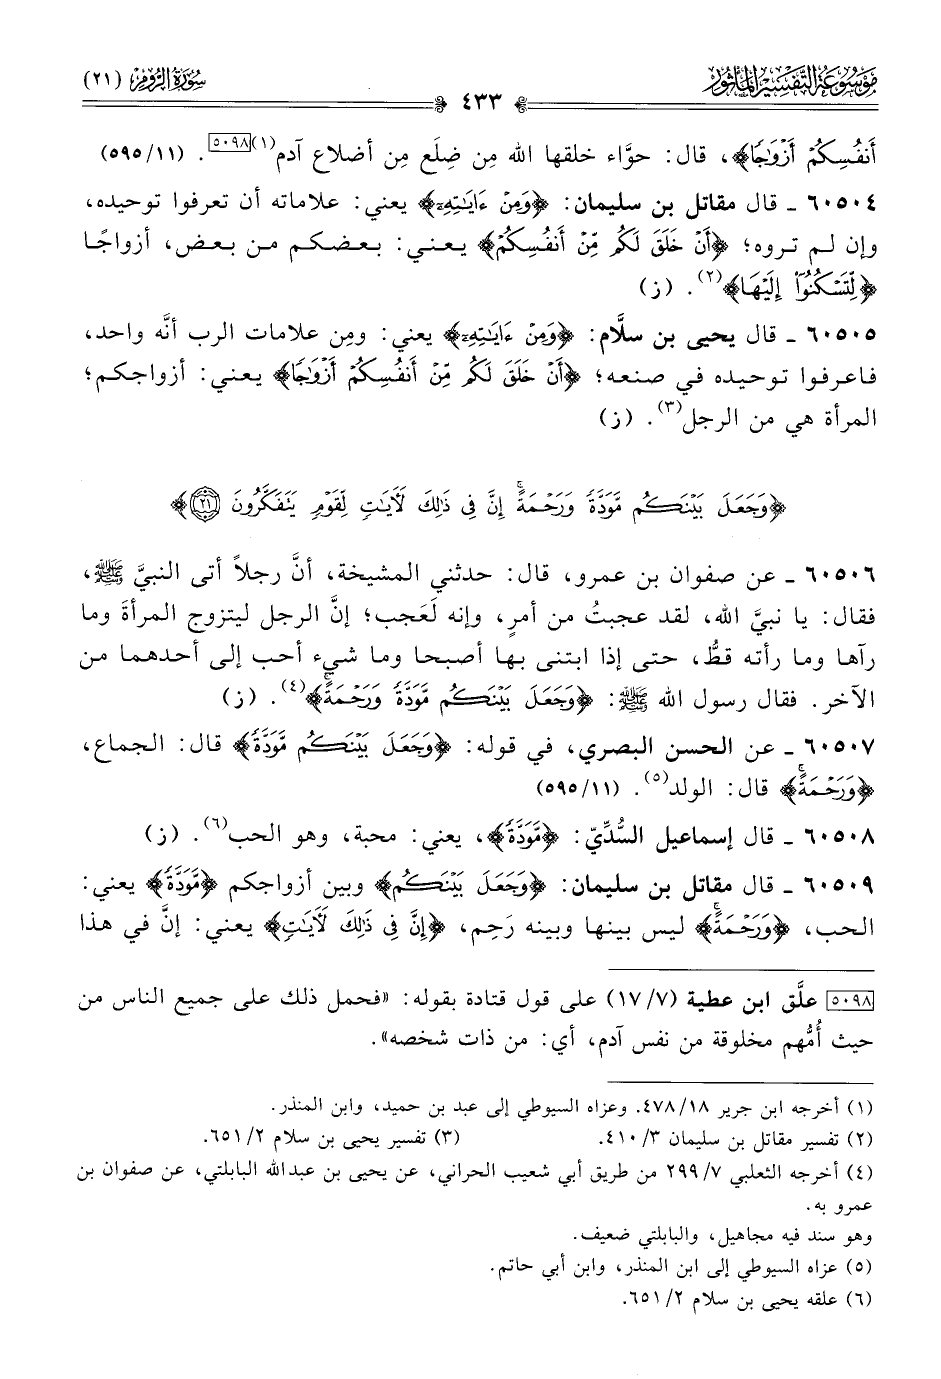 مَوْسُوعَة التَّفْسِير المَأْثُور
٤٣٣
سُورَةُ الرُّومِ (٢١)
أَنفُسِكُمْ أَزْوَٰجًا﴾، قال: حوَّاء خلقها الله مِن ضِلَع مِن أضلاع آدم(١)[٥٠٩٨]. (١١/ ٥٩٥)
٦٠٥٠٤ ـ قال مقاتل بن سليمان: ﴿وَمِنْ ءَايَٰتِهِۦٓ﴾ يعني: علاماته أن تعرفوا توحيده،
وإن لم تروه؛ ﴿أَنْ خَلَقَ لَكُم مِّنْ أَنفُسِكُمْ﴾ يعني: بعضكم من بعض، أزواجًا
﴿لِّتَسْكُنُوٓا۟ إِلَيْهَا﴾(٢). (ز)
٦٠٥٠٥ ـ قال يحيى بن سلَّام: ﴿وَمِنْ ءَايَٰتِهِۦٓ﴾ يعني: ومِن علامات الرب أنَّه واحد،
فاعرفوا توحيده في صنعه؛ ﴿أَنْ خَلَقَ لَكُم مِّنْ أَنفُسِكُمْ أَزْوَٰجًا﴾ يعني: أزواجكم؛
المرأة هي من الرجل(٣). (ز)
﴿وَجَعَلَ بَيْنَكُم مَّوَدَّةً وَرَحْمَةً ۚ إِنَّ فِى ذَٰلِكَ لَءَايَٰتٍ لِّقَوْمٍ يَتَفَكَّرُونَ ٢١﴾
٦٠٥٠٦ ـ عن صفوان بن عمرو، قال: حدثني المشيخة، أنَّ رجلاً أتى النبيَّ ﷺ،
فقال: يا نبيَّ الله، لقد عجبتُ من أمرٍ، وإنه لَعجب؛ إنَّ الرجل ليتزوج المرأةَ وما
رآها وما رأته قطُّ، حتى إذا ابتنى بها أصبحا وما شيء أحب إلى أحدهما من
الآخر. فقال رسول الله ﷺ: ﴿وَجَعَلَ بَيْنَكُم مَّوَدَّةً وَرَحْمَةً ۚ﴾(٤). (ز)
٦٠٥٠٧ ـ عن الحسن البصري، في قوله: ﴿وَجَعَلَ بَيْنَكُم مَّوَدَّةً﴾ قال: الجماع،
﴿وَرَحْمَةً ۚ﴾ قال: الولد(٥). (١١/ ٥٩٥)
٦٠٥٠٨ ـ قال إسماعيل السُّدِّيّ: ﴿مَّوَدَّةً﴾، يعني: محبة، وهو الحب(٦). (ز)
٦٠٥٠٩ ـ قال مقاتل بن سليمان: ﴿وَجَعَلَ بَيْنَكُم﴾ وبين أزواجكم ﴿مَّوَدَّةً﴾ يعني:
الحب، ﴿وَرَحْمَةً ۚ﴾ ليس بينها وبينه رَحِم، ﴿إِنَّ فِى ذَٰلِكَ لَءَايَٰتٍ﴾ يعني: إنَّ في هذا
[٥٠٩٨] علَّق ابن عطية (٧/ ١٧) على قول قتادة بقوله: «فحمل ذلك على جميع الناس من
حيث أُمُّهم مخلوقة من نفس آدم، أي: من ذات شخصه».
(١) أخرجه ابن جرير ١٨/ ٤٧٨. وعزاه السيوطي إلى عبد بن حميد، وابن المنذر.
(٢) تفسير مقاتل بن سليمان ٣/ ٤١٠. (٣) تفسير يحيى بن سلام ٢/ ٦٥١.
(٤) أخرجه الثعلبي ٧/ ٢٩٩ من طريق أبي شعيب الحراني، عن يحيى بن عبدالله البابلتي، عن صفوان بن
عمرو به.
وهو سند فيه مجاهيل، والبابلتي ضعيف.
(٥) عزاه السيوطي إلى ابن المنذر، وابن أبي حاتم.
(٦) علقه يحيى بن سلام ٢/ ٦٥١.